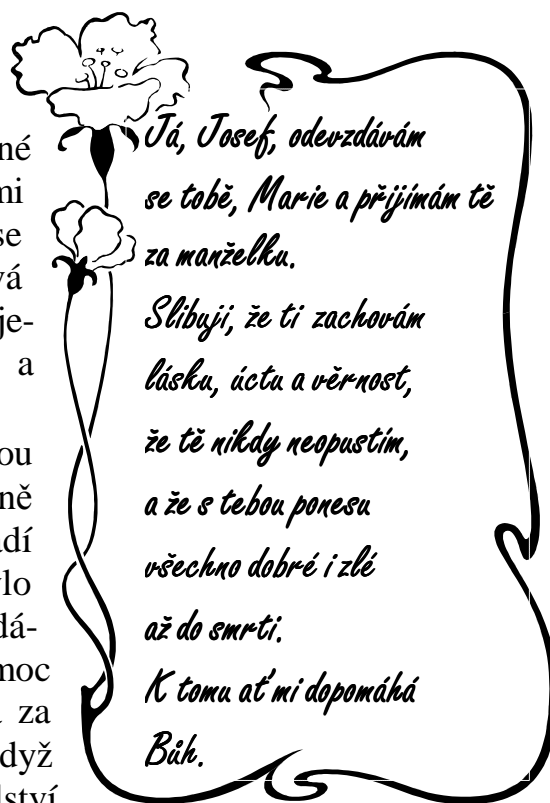 né
mi
se
vá
je-
a
ou
ně
adí
ylo
dá-
moc
za
dyž
lství
Já, Josef, odevzdávám
se tobě, Marie a přijímám tě
za manželku.
Slibuji, že ti zachovám
lásku, úctu a věrnost,
že tě nikdy neopustím,
a že s tebou ponesu
všechno dobré i zlé
až do smrti.
K tomu ať mi dopomáhá
Bůh.